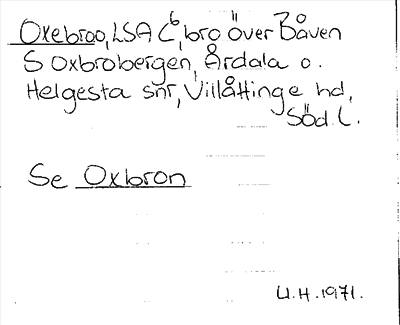 Oxebroo, LSA C6, bro över Båven
S Oxbrobergen, Årdala o.
Helgesta snr, Villåttinge hd,
Söd. l.
Se Oxbron
U.H. 1971.